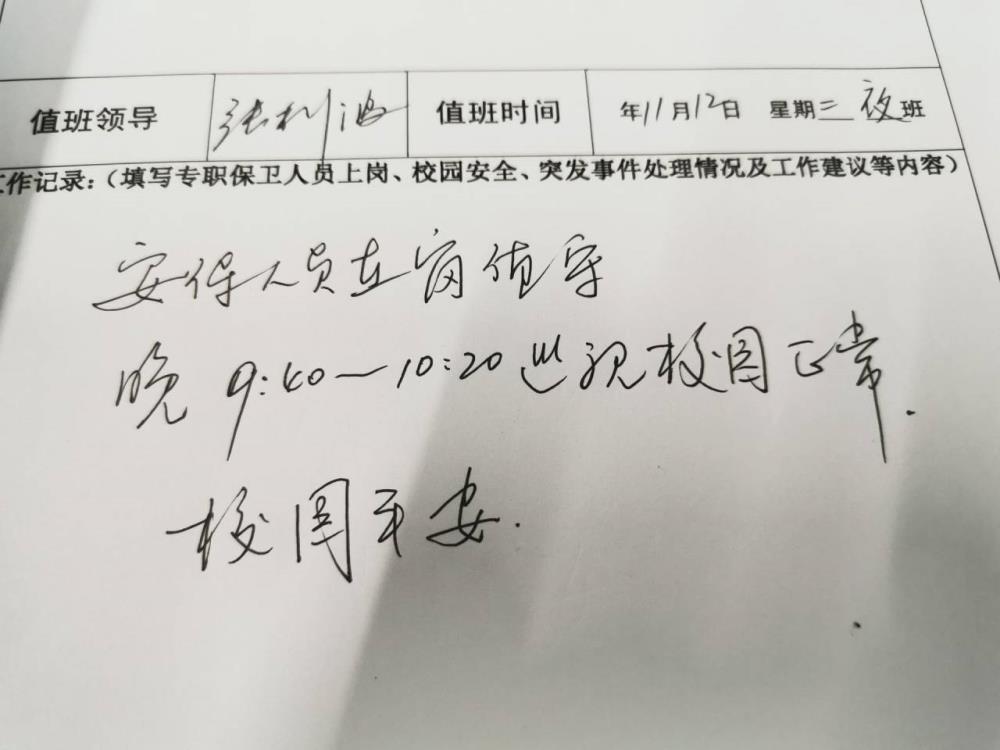 值班领导 张利波 值班时间 年11月12日 星期三 夜班
工作记录：（填写专职保卫人员上岗、校园安全、突发事件处理情况及工作建议等内容）
安保人员在岗值守
晚9:40—10:20巡视校园正常.
校园平安.